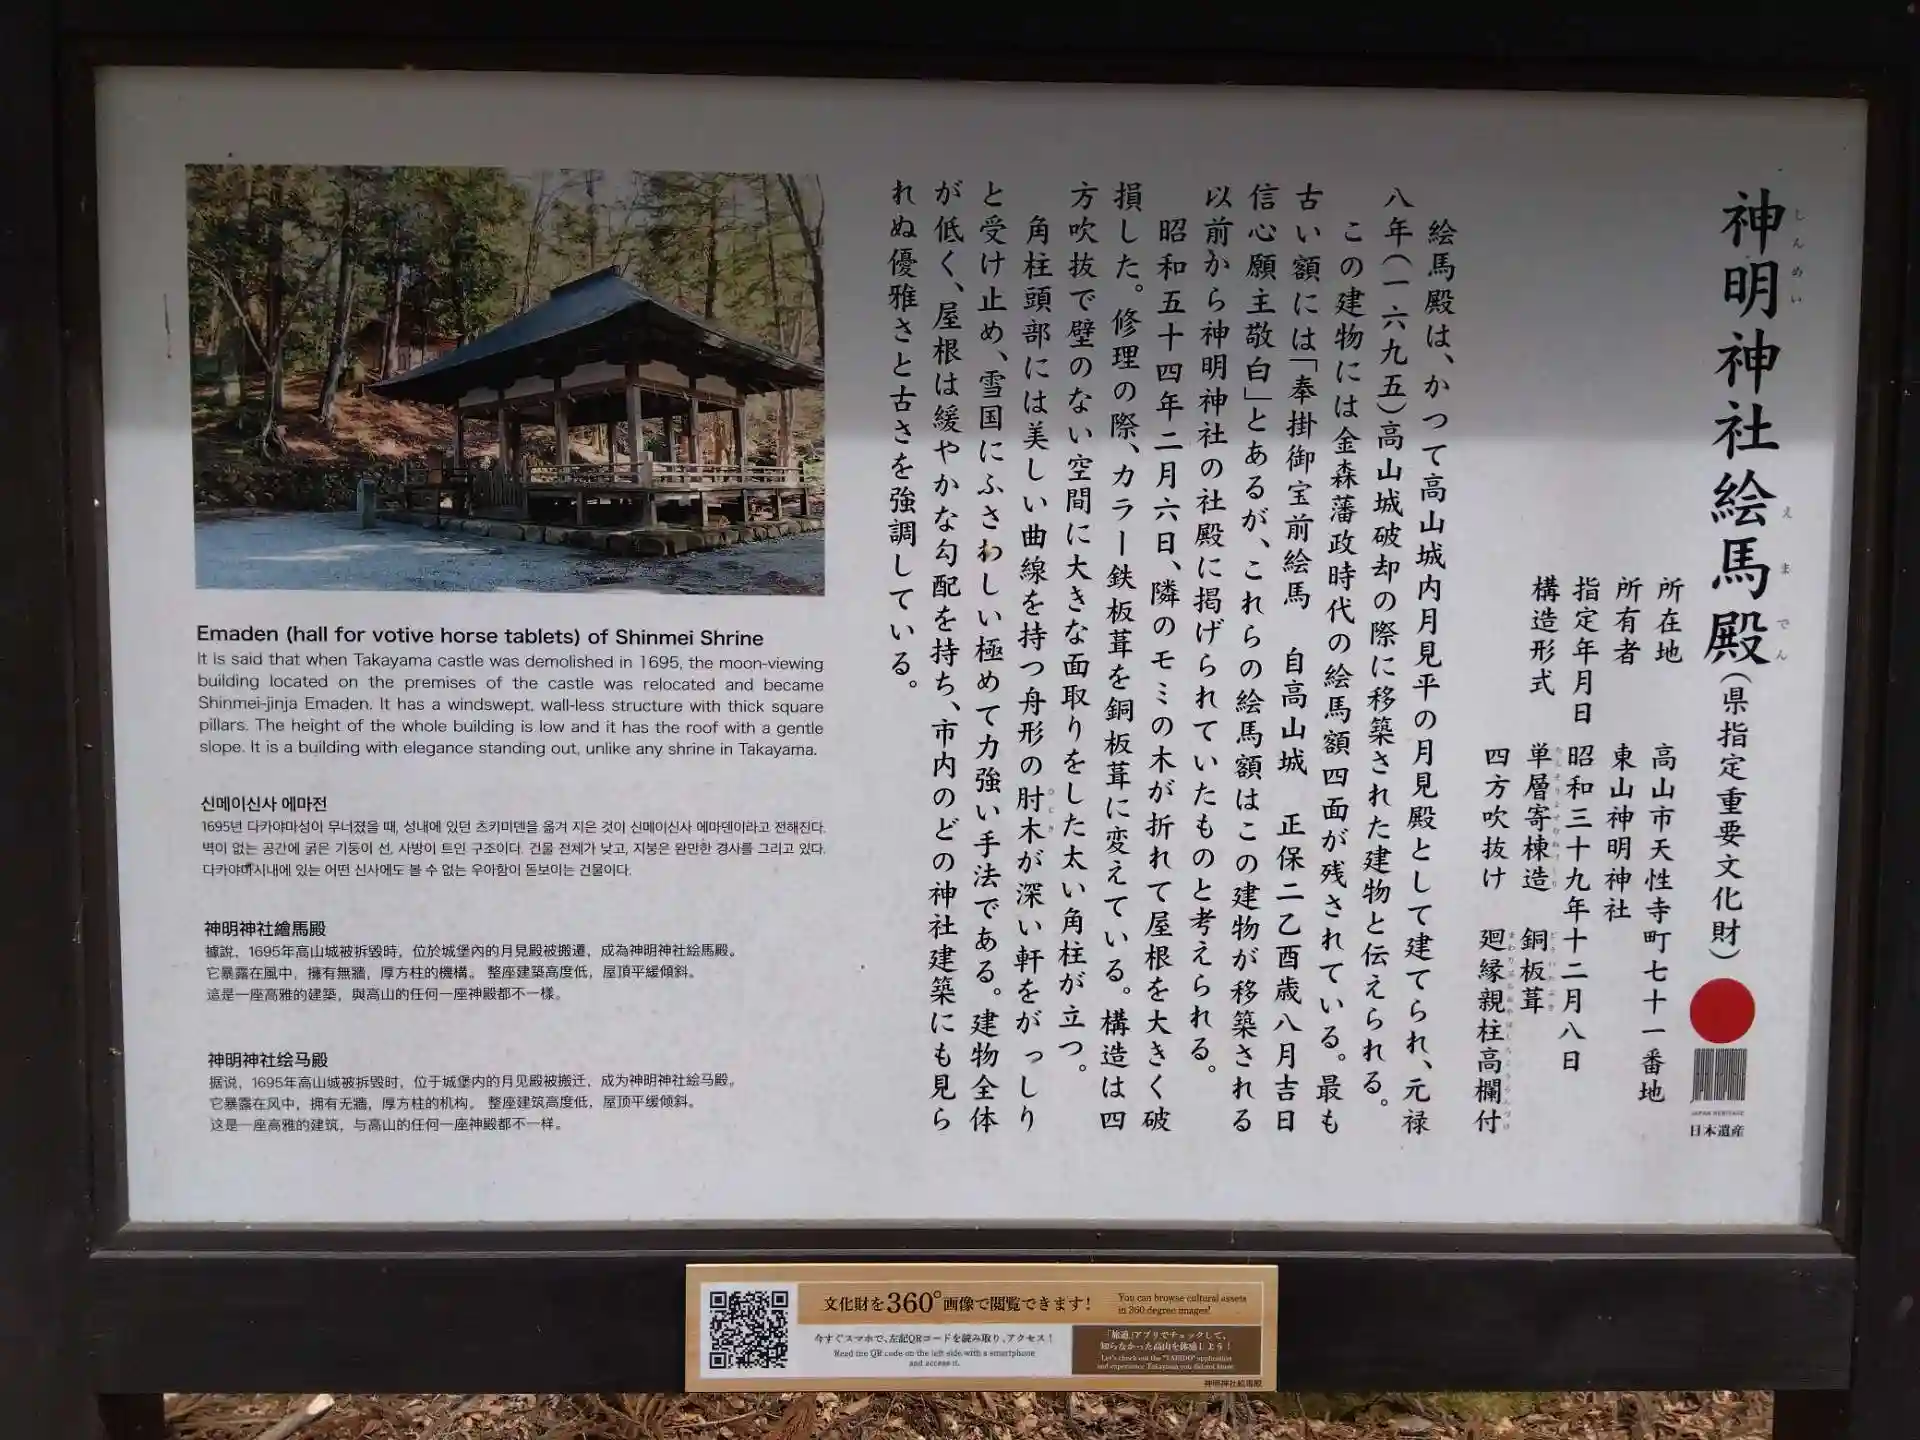 神明神社絵馬殿(県指定重要文化財)
しんめい
えまでん
所在地 高山市天性寺町七十一番地
所有者 東山神明神社
指定年月日 昭和三十九年十二月八日
構造形式 単層寄棟造 銅板葺
四方吹抜け 廻縁親柱高欄付
絵馬殿は、かつて高山城内月見平の月見殿として建てられ、元禄
八年(一六九五)高山城破却の際に移築された建物と伝えられる。
この建物には金森藩政時代の絵馬額四面が残されている。最も
古い額には「奉掛御宝前絵馬 自高山城 正保二乙酉歳八月吉日
信心願主敬白」とあるが、これらの絵馬額はこの建物が移築される
以前から神明神社の社殿に掲げられていたものと考えられる。
昭和五十四年二月六日、隣のモミの木が折れて屋根を大きく破
損した。修理の際、カラー鉄板葺を銅板葺に変えている。構造は四
方吹抜で壁のない空間に大きな面取りをした太い角柱が立つ。
角柱頭部には美しい曲線を持つ舟形の肘木が深い軒をがっしり
ひじき
と受け止め、雪国にふさわしい極めて力強い手法である。建物全体
が低く、屋根は緩やかな勾配を持ち、市内のどの神社建築にも見ら
れぬ優雅さと古さを強調している。
JAPAN HERITAGE
日本遺産
Emaden (hall for votive horse tablets) of Shinmei Shrine
It is said that when Takayama castle was demolished in 1695, the moon-viewing
building located on the premises of the castle was relocated and became
Shinmei-jinja Emaden. It has a windswept, wall-less structure with thick square
pillars. The height of the whole building is low and it has the roof with a gentle
slope. It is a building with elegance standing out, unlike any shrine in Takayama.
신메이신사 에마전
1695년 다카야마성이 무너졌을 때, 성내에 있던 츠키미덴을 옮겨 지은 것이 신메이신사 에마덴이라고 전해진다.
벽이 없는 공간에 굵은 기둥이 선, 사방이 트인 구조이다. 건물 전체가 낮고, 지붕은 완만한 경사를 그리고 있다.
다카야마시내에 있는 어떤 신사에도 볼 수 없는 우아함이 돋보이는 건물이다.
神明神社繪馬殿
據說，1695年高山城被拆毀時，位於城堡內的月見殿被搬遷，成為神明神社絵馬殿。
它暴露在風中，擁有無牆，厚方柱的機構。 整座建築高度低，屋頂平緩傾斜。
這是一座高雅的建築，與高山的任何一座神殿都不一樣。
神明神社绘马殿
据说，1695年高山城被拆毁时，位于城堡内的月见殿被搬迁，成为神明神社绘马殿。
它暴露在风中，拥有无牆，厚方柱的机构。 整座建筑高度低，屋顶平缓倾斜。
这是一座高雅的建筑，与高山的任何一座神殿都不一样。
文化財を360°画像で閲覧できます!
You can browse cultural assets
in 360 degree images!
今すぐスマホで、左記QRコードを読み取り、アクセス!
Read the QR code on the left side with a smartphone
and access it.
「旅道」アプリでチェックして、
知らなかった高山を体感しよう!
Let's check out the "TABIDO" application
and experience Takayama you did not know.
神明神社絵馬殿